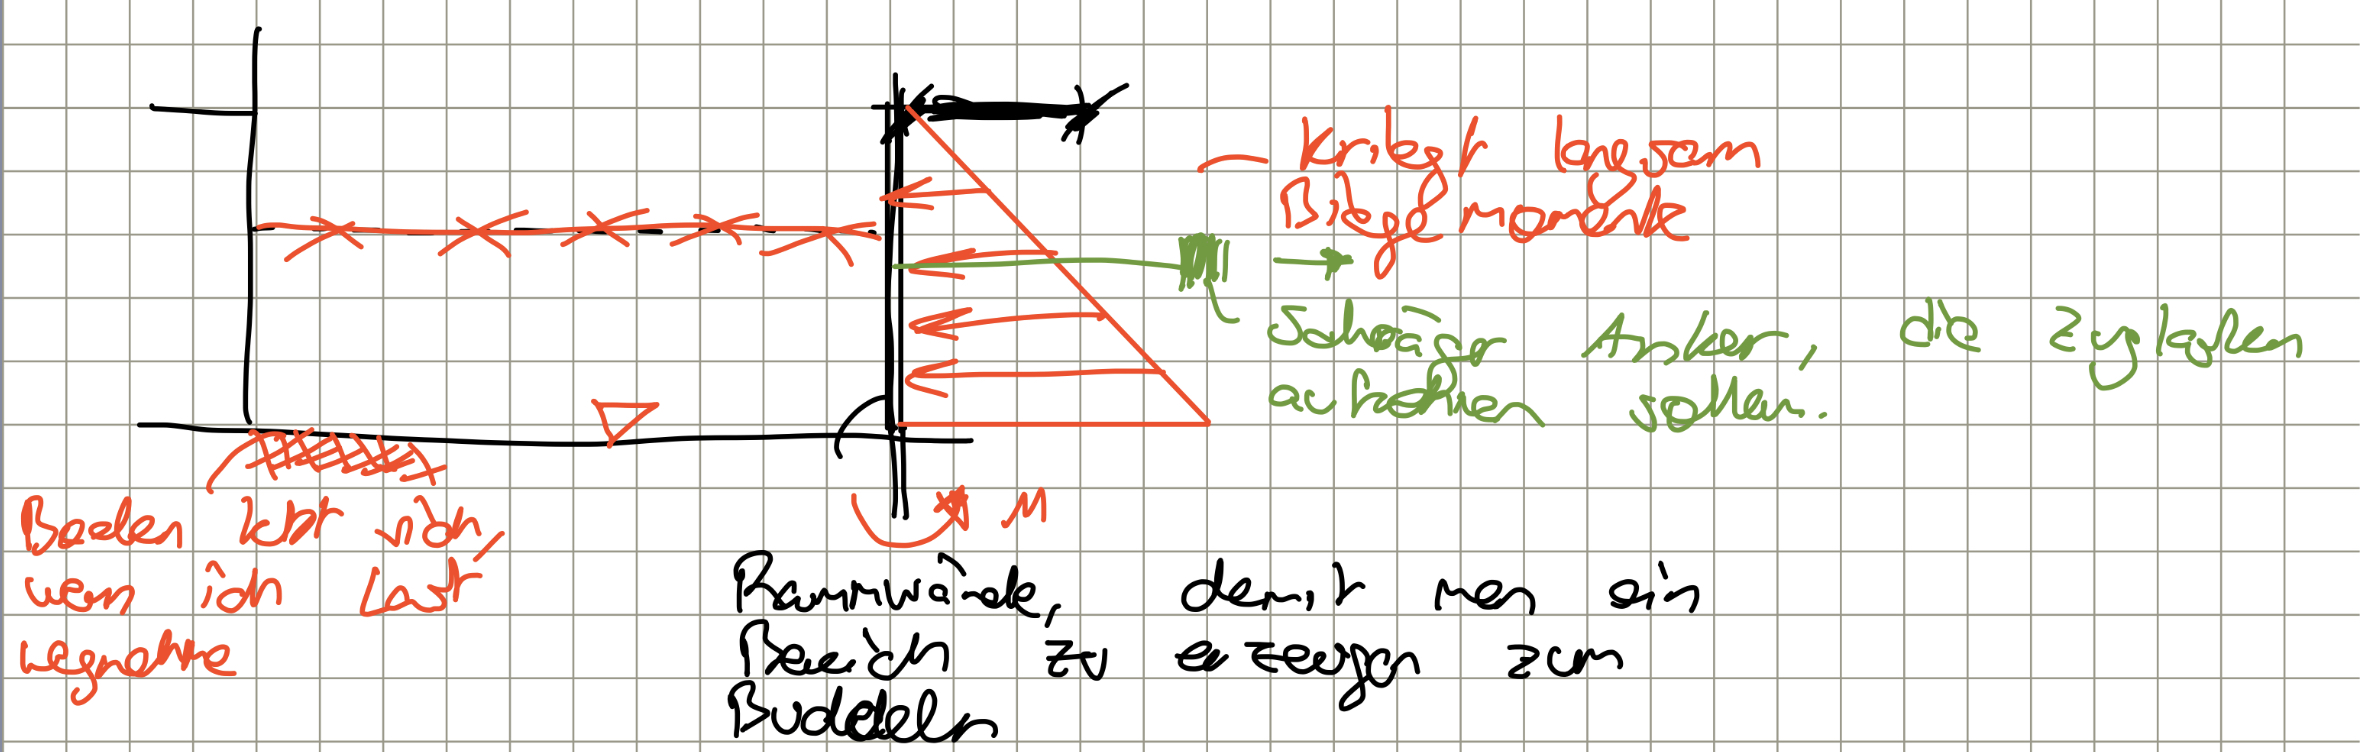 — kriegt langsam
Biegemomente
Schräger Anker, die Zuglasten
aufnehmen sollen.
M
Boden lebt nicht,
wenn ich Last
wegnehme
Rammwände, damit man ein
Bereich zu erzeugen zum
Buddeln